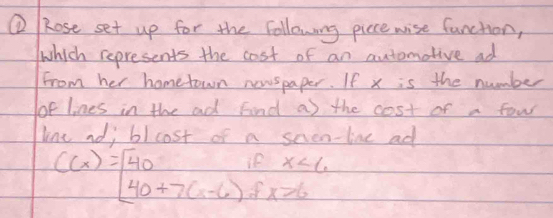 ② Rose set up for the following piece wise function,
which represents the cost of an automotive ad
from her hometown newspaper. If x is the number
of lines in the ad find a) the cost of a four
line ad; b) cost of a seven-line ad
C(x) = [40 if x<6
[40+7(x-6) if x≥6